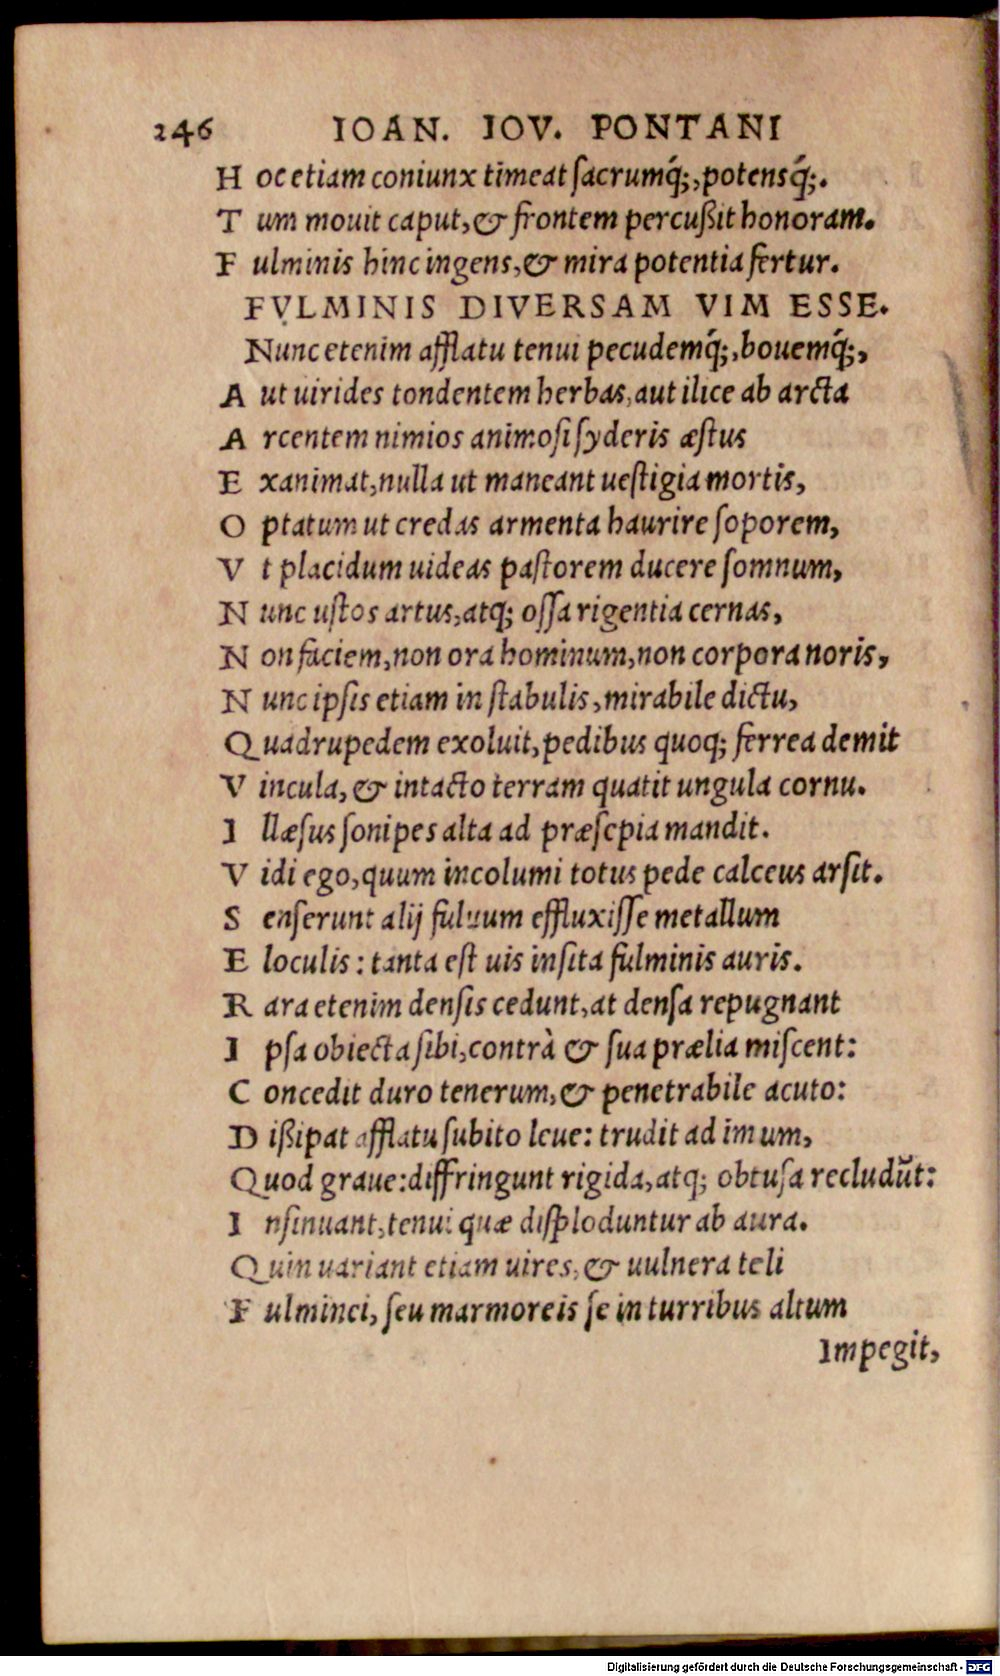 246 IOAN. IOV. PONTANI
Hoc etiam coniunx timeat sacrumq́;, potensq́;.
Tum mouit caput, & frontem percußit honoram.
Fulminis hinc ingens, & mira potentia fertur.
FVLMINIS DIVERSAM VIM ESSE.
Nunc etenim afflatu tenui pecudemq́;, bouemq́;,
Aut uirides tondentem herbas, aut ilice ab arcta
Arcentem nimios animosi syderis æstus
Exanimat, nulla ut maneant uestigia mortis,
Optatum ut credas armenta haurire soporem,
Vt placidum uideas pastorem ducere somnum,
Nunc ustos artus, atq; ossa rigentia cernas,
Non faciem, non ora hominum, non corpora noris,
Nunc ipsis etiam in stabulis, mirabile dictu,
Quadrupedem exoluit, pedibus quoq; ferrea demit
Vincula, & intacto terram quatit ungula cornu.
Illæsus sonipes alta ad præsepia mandit.
Vidi ego, quum incolumi totus pede calceus arsit.
Senserunt alij fuluum effluxisse metallum
E loculis: tanta est uis insita fulminis auris.
Rara etenim densis cedunt, at densa repugnant
Ipsa obiecta sibi, contrà & sua prælia miscent:
Concedit duro tenerum, & penetrabile acuto:
Dißipat afflatu subito leue: trudit ad imum,
Quod graue: diffringunt rigida, atq; obtusa recludũt:
Insinuant, tenui quæ disploduntur ab aura.
Quin uariant etiam uires, & uulnera teli
Fulminei, seu marmoreis se in turribus altum
Impegit,
Digitalisierung gefördert durch die Deutsche Forschungsgemeinschaft - DFG